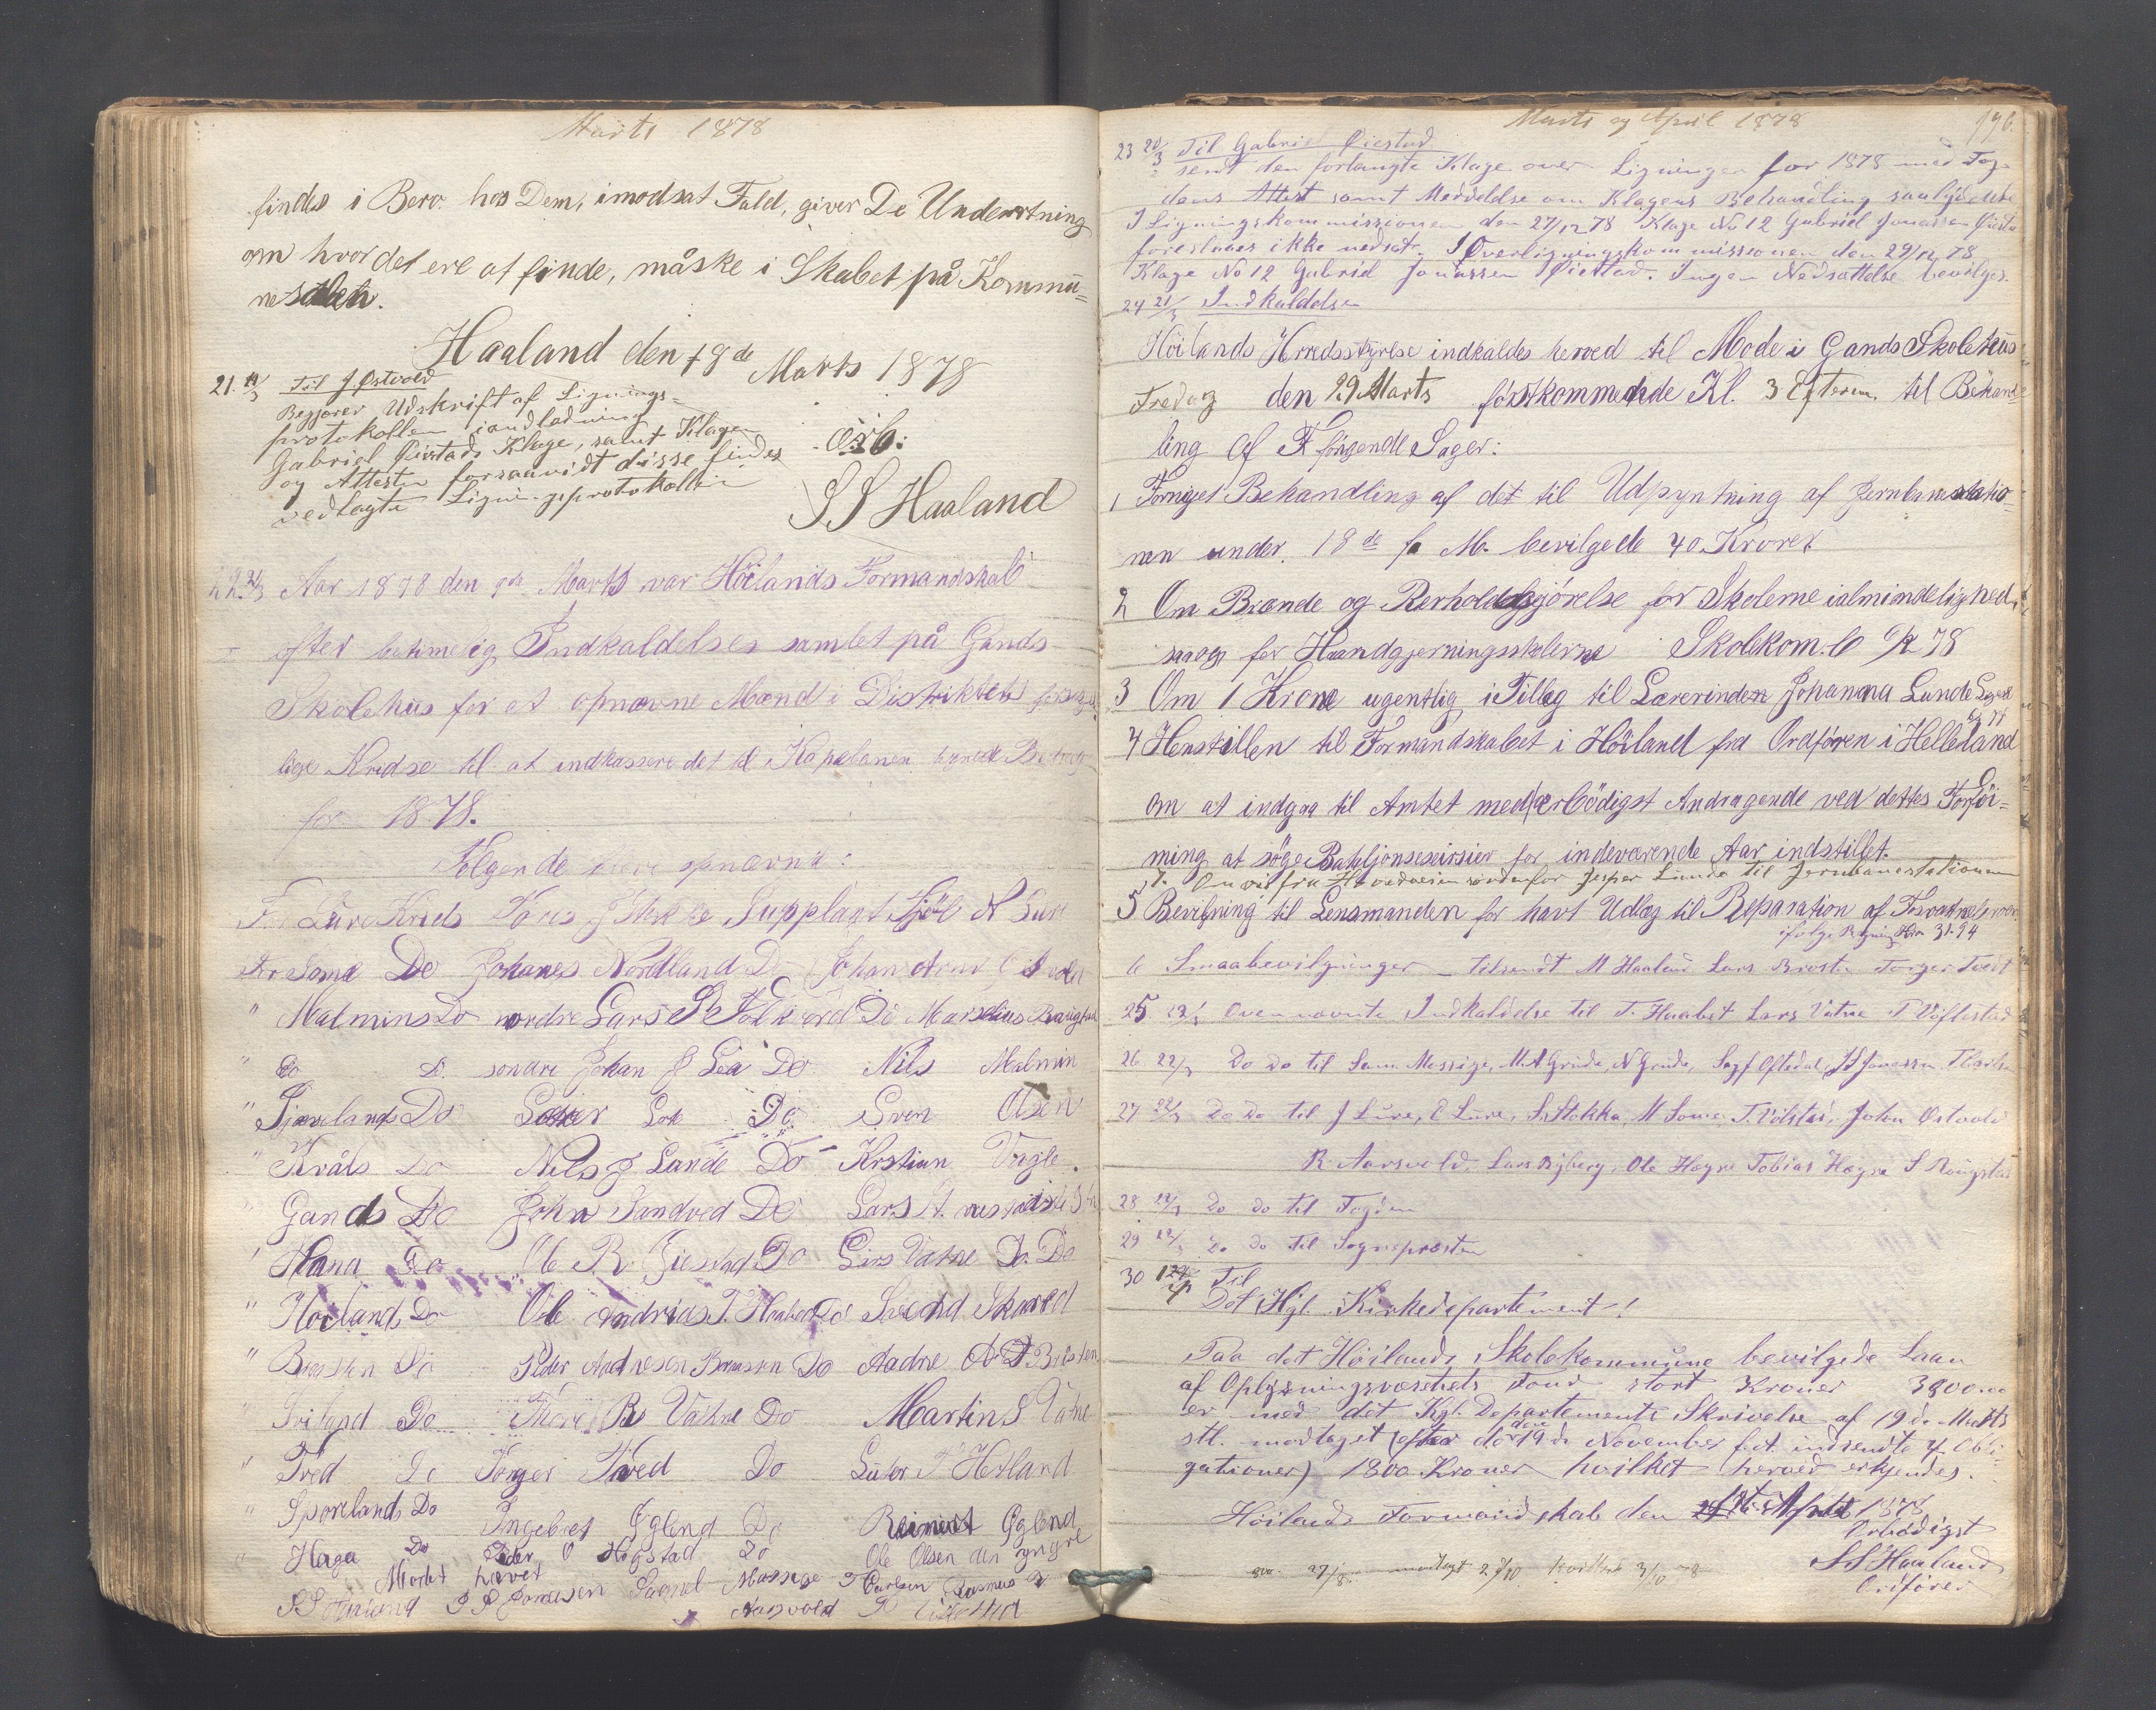 Marts 1878
findes i Bero. hos Dem, imodsat Fald, giver De Underretning
om hvor det ere at finde, måske i Skabet på Kommu=
nestuen.
Haaland den 18de Marts 1878
ærb:
S S Haaland
21. 19/3 Til J Østvold
Begjærer Udskrift af Lignings=
protokollen iandledning
Gabriel Øiestads Klage, samt Klagen
og Attester forsaavidt disse findes
vedlagte Ligningsprotokollen
22. 21/3 Aar 1878 den 9de Marts var Höilands Formandskab
efter betimelig Indkaldelses samlet på Gands
Skolehus for at opnævne Mænd i Distriktets forskjel
lige Kredse til at indkassere det til Kapelanen lignede Bidrag
for 1878.
Følgende bleve opnævnt:
For Lure Kreds Tores J Stokke Supplant Sjöl N Lure
For Soma Do Johanes Nordland Do Johan Arnt Østvold
" Malmins Do nordre Lars P Folkvord Do Marselius Raugstad
" Do Do söndre Johan J Lea Do Nils Malmin
" Skjævelands Do Lok Do Sven Olsen
" Kråls Do Nils J Lunde Do Kristian Vagle
" Gands Do John Sandved Do Lars A.
" Hana Do Ole R. Giestad Do Lars Vatne Do Do
" Høilands Do Ole Andrias T. Haabet Do Svend Skared
" Brusten Do Peder Andresen Brusten Do Aadne A Brusten
" Sviland Do Tore Bs Vatne Do Martin S Vatne
" Tved Do Torger Tved Do Lutor T Hetland
" Sporelands Do Ingebret Øglend Do Reinert Øglend
" Haga Do Peder O Høgstad Do Ole Olsen den yngre
Mödet hævet
S S Haaland J S Jonassen Samuel Massige T Carlsen Rasmus
Aarsvold
Marts og April 1878
196.
23 20/3 Til Gabriel Øiestad
sendt den forlangte Klage over Ligningen for 1878 med Fog
dens Attest samt Meddelelse om Klagens Behandling saalydende
I Ligningskommissionen den 27/12 78 Klage No 12 Gabriel Jonassen Øiestad
foreslaaes ikke nedsat. I Overligningskommissionen den 29/12 78
Klage No 12 Gabriel Jonassen Øiestad. Ingen Nedsættelse bevilges.
24 21/3 Indkaldelse
Höilands Herredsstyrelse indkaldes herved til Mode i Gands Skolehus
Fredag den 29 Marts förstkommende Kl. 3 Efterm. til Behand=
ling af Følgende Sager:
1 Fornyet Behandling af det til Udpyntning af Jernbanestatio=
nen under 18de f. M. bevilgede 40 Kroner
2 Om Brænde og Renholdsgjörelse for Skolerne ialmindelighed,
saaog for Haandgjerningsskolerne Skolekom. 6/2 78
3 Om 1 Krone ugentlig i Tillæg til Lærerinden Johanna Lunde
4 Henstillen til Formandskabet i Höiland fra Ordfören i Helleland
om at indgaa til Amtet med ærbödigst Andragende ved dettes Forföi=
ning at söge Bataljonsexersier for indeværende Aar indstillet.
7. Om vei fra Hovedveien nordenfor Jesper Lunde til Jernbanestationen
5 Bevilgning til Lensmanden for havt Udlæg til Reparation af Forvaringsrom
ifølge Regning Kr 31.94
6 Smaabevilgninger tilsendt M Haaland Lars Brusten Torger Tvedt
25. 22/3 Ovennævnte Indkaldelse til T. Haabet Lars Vatne T Töftestad
26 22/3 Do do til Sam. Massige, M A Grude, N Grude, Oftedal, J S Jonassen T Carlsen
27 22/3 Do do til J Lure, E Lure, S. Stokka, M Soma, T. Volstad, John Østvold
R. Aarsvold, Lars Bjberg, Ole Hogne Tobias Høgne S Raugstad
28 22/3 Do do til Fogden
29 22/3 Do do til Sognepresten
30 1/4 Til
Det Kgl. Kirkedepartement!
Paa det Höilands Skolekommune bevilgede Laan
af Oplysningsvæsenets Fond stort Kroner 3800.00
er med det Kgl. Departements Skrivelse af 19de Marts
stl. modtaget (efter de den 19de November f. A. indsendte 4 Obli=
gationer) 1800 Kroner hvilket herved erkjendes.
Höilands Formandskab den 1ste April 1878
Ærbødigst
S S Haaland
Ordfører
modtagt 2/10 kvitteret 3/10 78